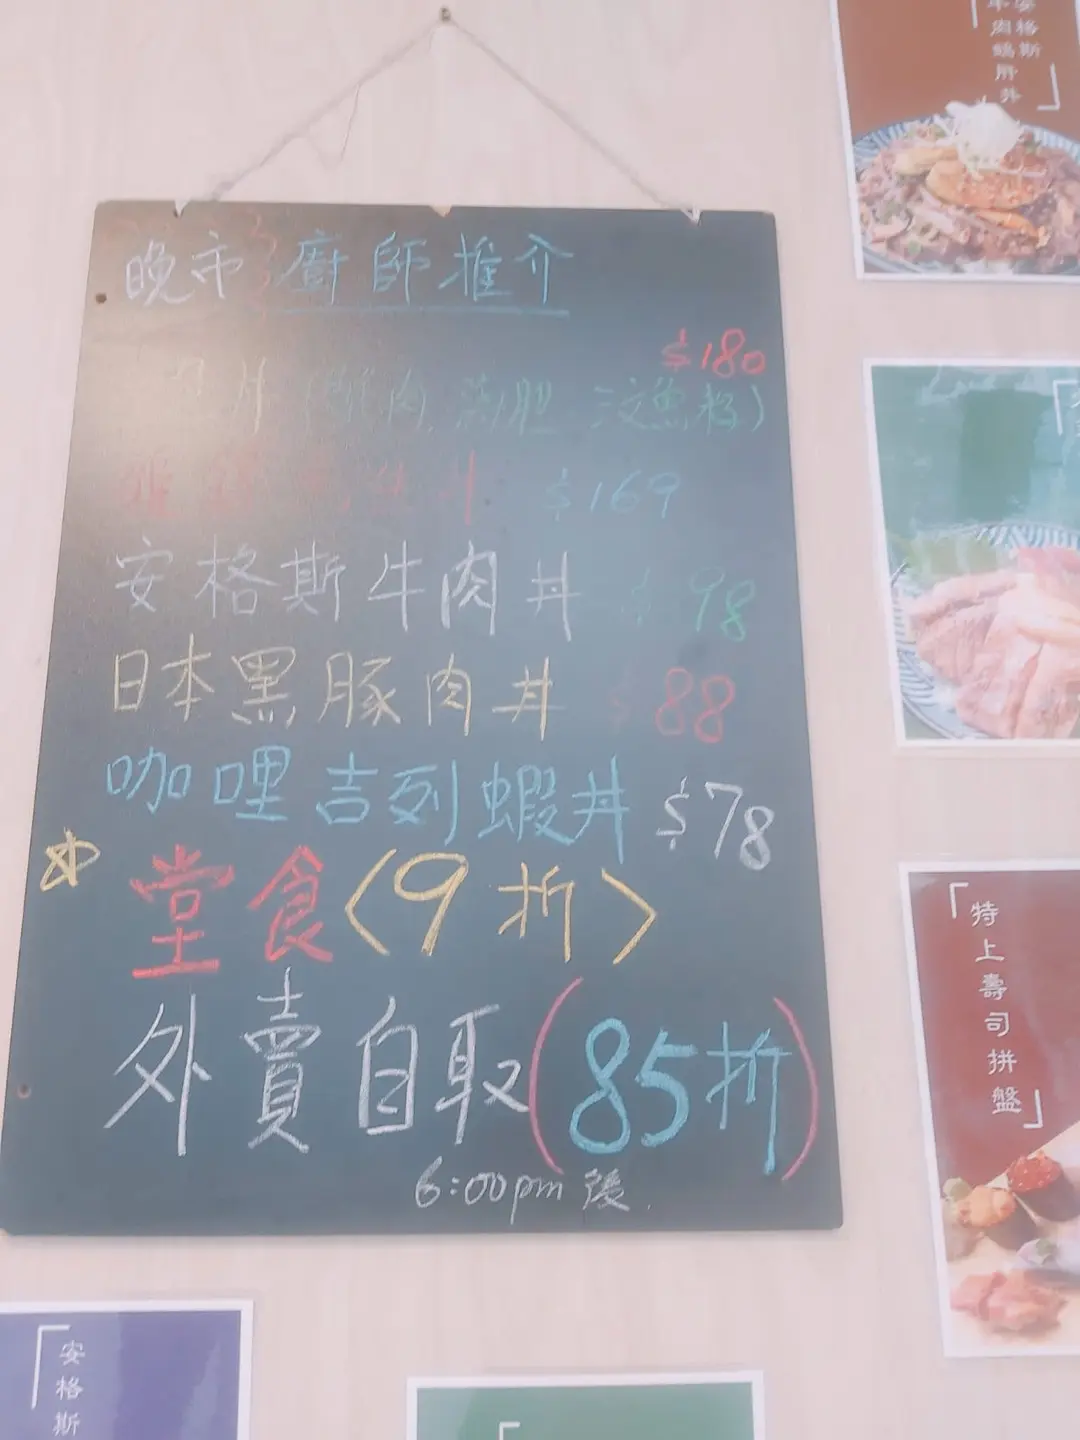 晚市廚師推介
$180
丼(蟹肉
三文魚籽)
牛丼 $169
安格斯牛肉丼 $98
日本黑豚肉丼 $88
咖哩吉列蝦丼 $78
堂食〈9折〉
外賣自取(85折)
6:00pm後
安格斯
「特上壽司拼盤」
「安格斯